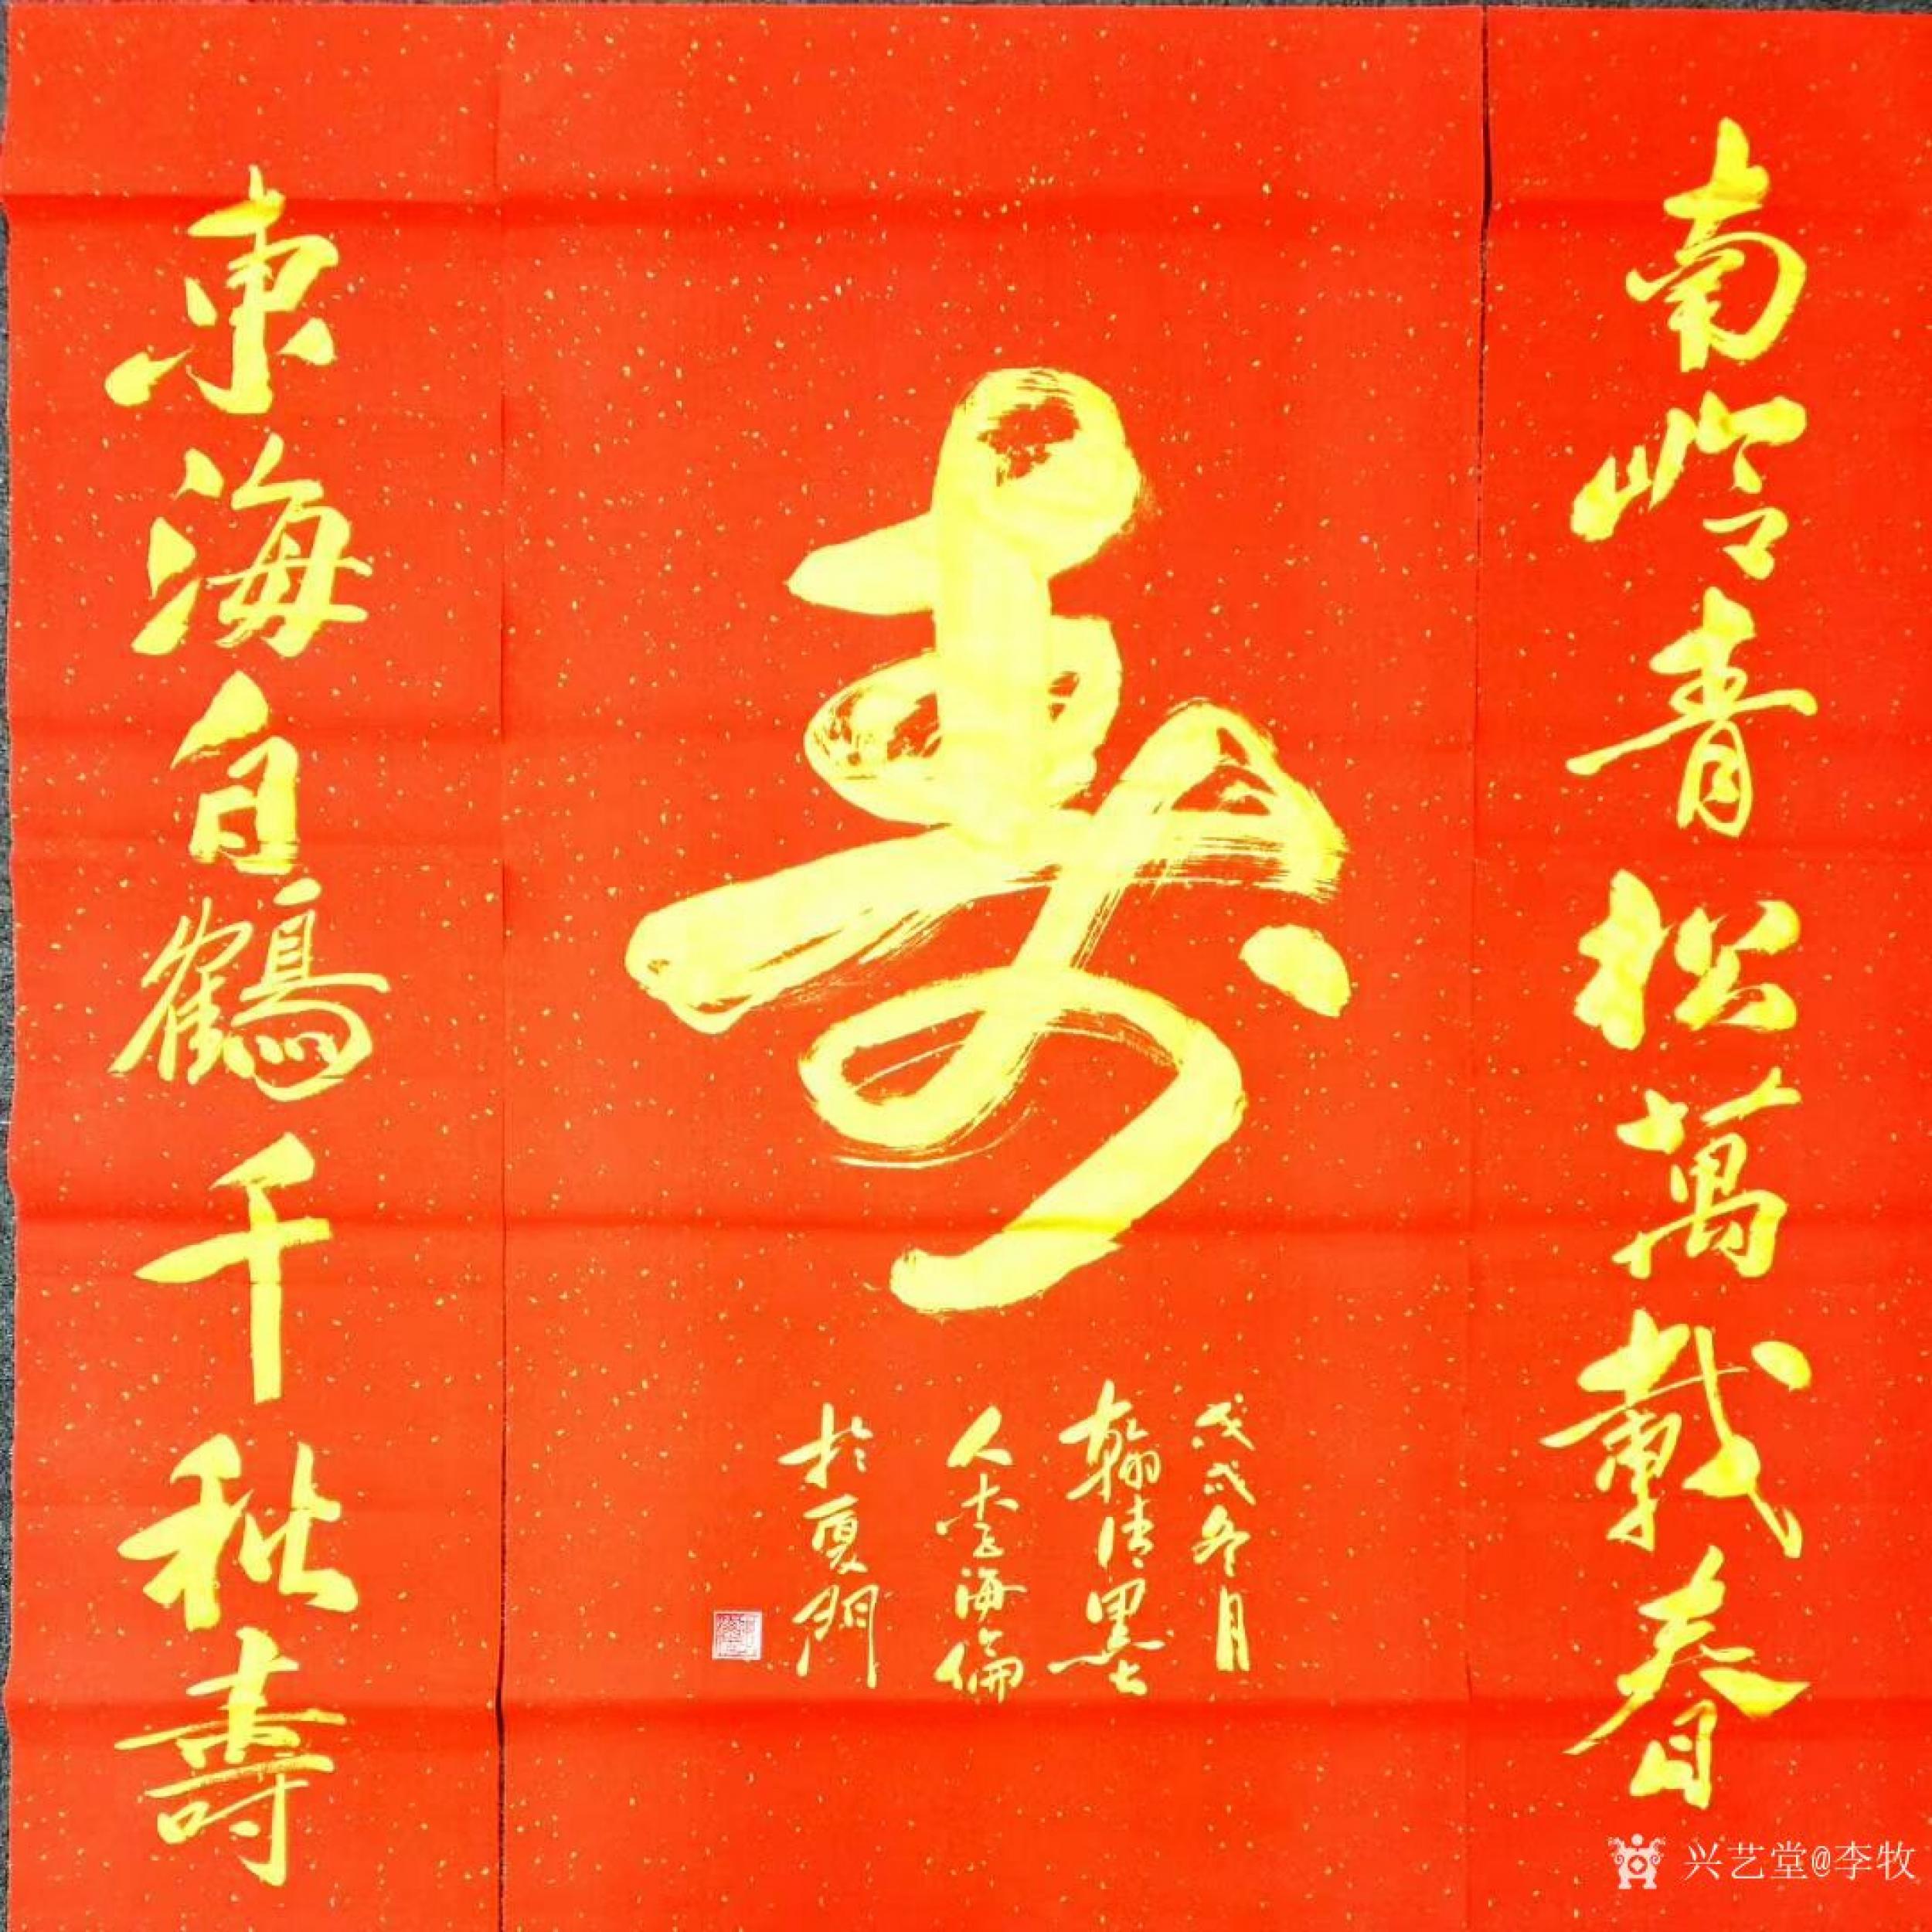 南岭青松萬載春
寿
東海白鶴千秋壽
戊戌冬月
翰清墨
人李海倫
於厦門
兴艺堂@李牧